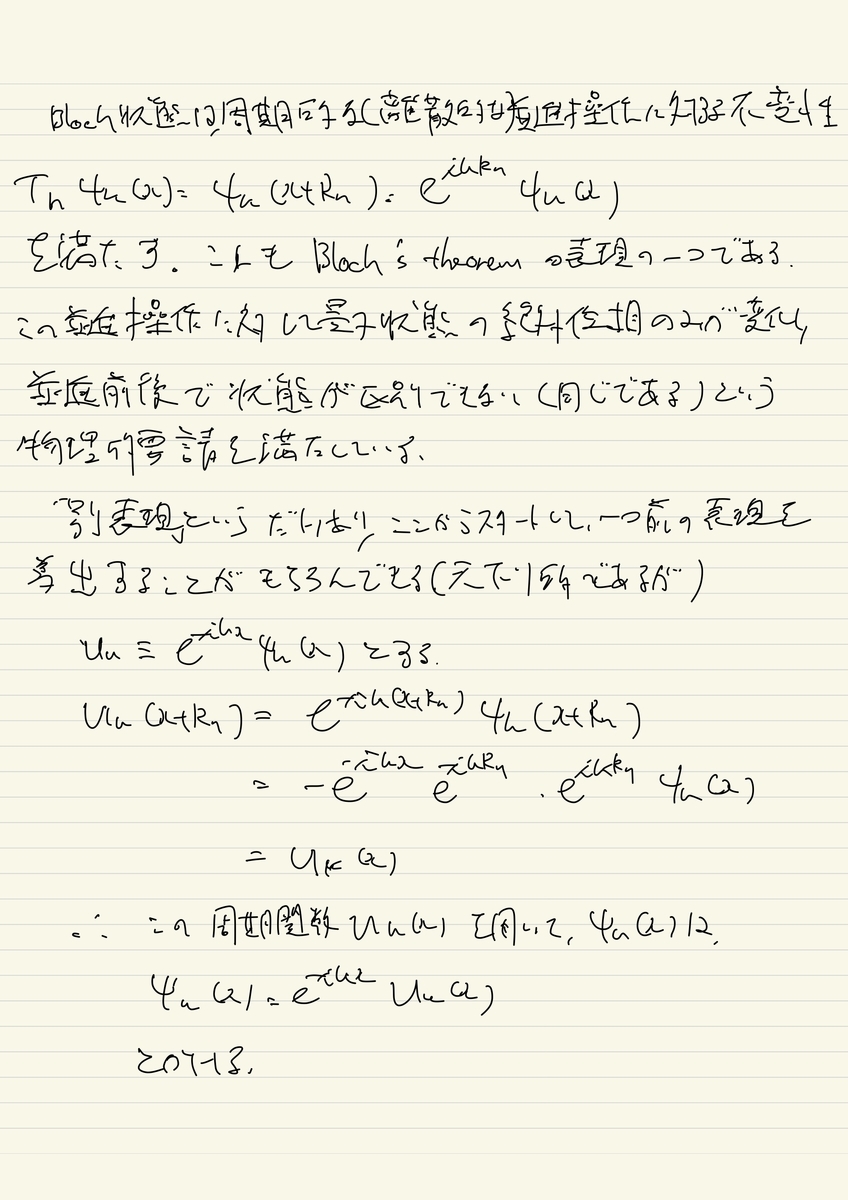 Bloch状態は周期的な(離散的な)並進操作に対する不変性
Tₙ ψₖ(x) = ψₖ(x+Rₙ) = e^{ikRₙ} ψₖ(x)
を満たす。これも Bloch's theorem の表現の一つである.
この並進操作に対して量子状態の絶対位相のみが変化し,
並進前後で状態が区別できない(同じである)という
物理的要請を満たしている.
「別表現」というだけあり, ここからスタートして, 一つ前の表現を
導出することがもちろんできる(天下り的であるが)
uₖ ≡ e^{-ikx} ψₖ(x) とする.
uₖ(x+Rₙ) = e^{-ik(x+Rₙ)} ψₖ(x+Rₙ)
= -e^{-ikx} e^{-ikRₙ} · e^{ikRₙ} ψₖ(x)
= uₖ(x)
∴ この周期関数 uₖ(x) を用いて, ψₖ(x) は,
ψₖ(x) = e^{-ikx} uₖ(x)
とかける.